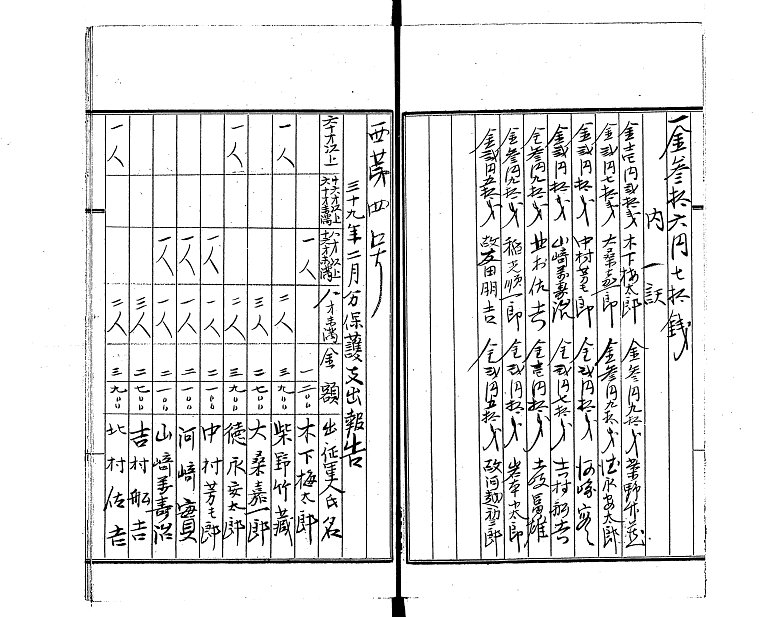 一金参拾六円七拾銭
内訳
金壱円弐拾戔 木下梅太郎 金参円九拾戔 柴野竹蔵
金弐円七拾戔 大桑嘉一郎 金参円九拾戔 徳永安太郎
金弐円拾戔 中村芳七郎 金弐円拾戔 河崎寅
金弐円拾戔 山﨑萬壽治 金弐円七拾戔 吉村船吉
金参円九拾戔 北村佐吉 金壱円拾戔
金参円九拾戔 稲光順一郎 金弐円拾戔 岩本小太郎
金弐円五拾戔 故友田朋吉 金弐円五拾戔
西第四号
三十九年二月分保護支出報告
六十才以上 十六才以上六十才未満 八才以上十六才未満 八才未満 金額 出征軍人氏名
一人 一二〇〇 木下梅太郎
一人 二人 三九〇〇 柴野竹蔵
三人 二七〇〇 大桑嘉一郎
一人 二人 三九〇〇 徳永安太郎
一人 一人 二一〇〇 中村芳七郎
一人 一人 二一〇〇 河﨑寅
一人 一人 二一〇〇 山﨑萬壽治
三人 二七〇〇 吉村船吉
一人 二人 三九〇〇 北村佐吉